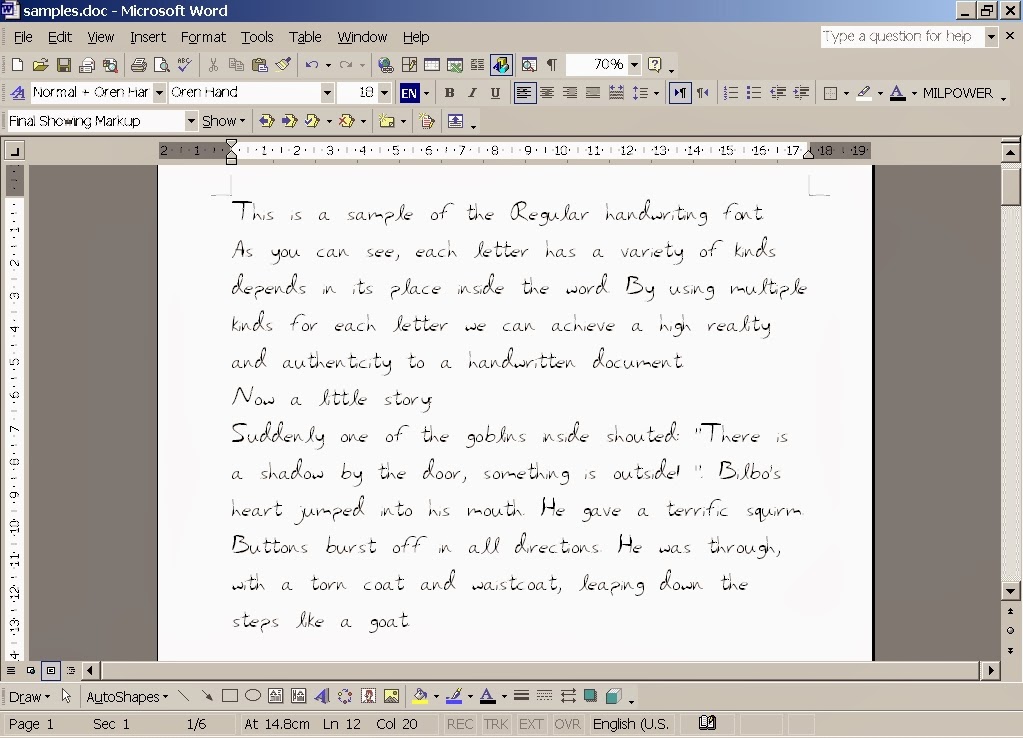 samples.doc - Microsoft Word
File Edit View Insert Format Tools Table Window Help Type a question for help
70%
Normal + Oren Har Oren Hand 18 EN B I U MILPOWER
Final Showing Markup Show
2 1 1 2 3 4 5 6 7 8 9 10 11 12 13 14 15 16 17 18 19
This is a sample of the Regular handwriting font.
As you can see, each letter has a variety of kinds
depends in its place inside the word. By using multiple
kinds for each letter we can achieve a high reality
and authenticity to a handwritten document.
Now a little story:
Suddenly one of the goblins inside shouted: "There is
a shadow by the door, something is outside! ". Bilbo's
heart jumped into his mouth. He gave a terrific squirm.
Buttons burst off in all directions. He was through,
with a torn coat and waistcoat, leaping down the
steps like a goat.
Draw AutoShapes
Page 1 Sec 1 1/6 At 14.8cm Ln 12 Col 20 REC TRK EXT OVR English (U.S.